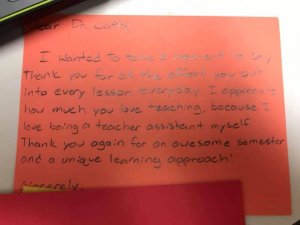 Dear Dr.
I wanted to take a moment to say
thank you for all the effort you put
into every lesson everyday. I appreciate
how much you love teaching, because I
love being a teacher assistant myself.
Thank you again for an awesome semester
and a unique learning approach!
Sincerely,